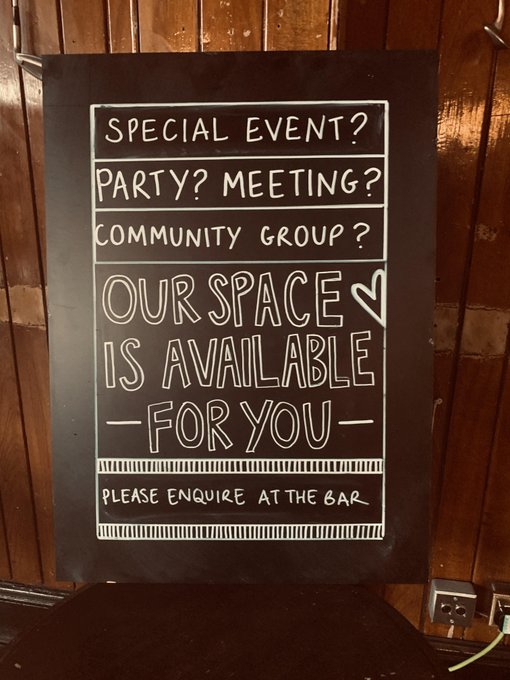 SPECIAL EVENT?
PARTY? MEETING?
COMMUNITY GROUP?
OUR SPACE
IS AVAILABLE
— FOR YOU —
PLEASE ENQUIRE AT THE BAR